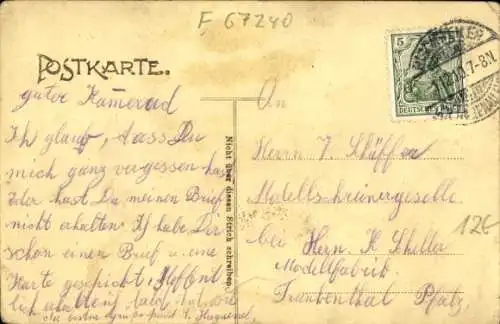 F 67240
POSTKARTE.
5
guter Kamerad
Ich glaub, dass Du
mich ganz vergessen hast
oder hast Du meinen Brief
nicht erhalten. Ich habe Dir
schon einen Brief u. eine
Karte geschickt. Hoffent
lich erhaltens bald Antwort
Nicht über diesen Strich schreiben.
An
Herrn V. Schäffer
Modellschreinergeselle
bei Herrn K. Scheller
Modellfabrik
Frankenthal Pfalz.
12€